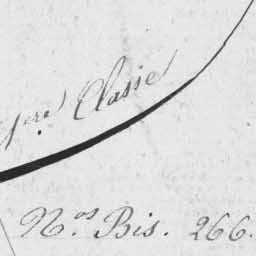 1ere Classe
N.os Bis. 266.